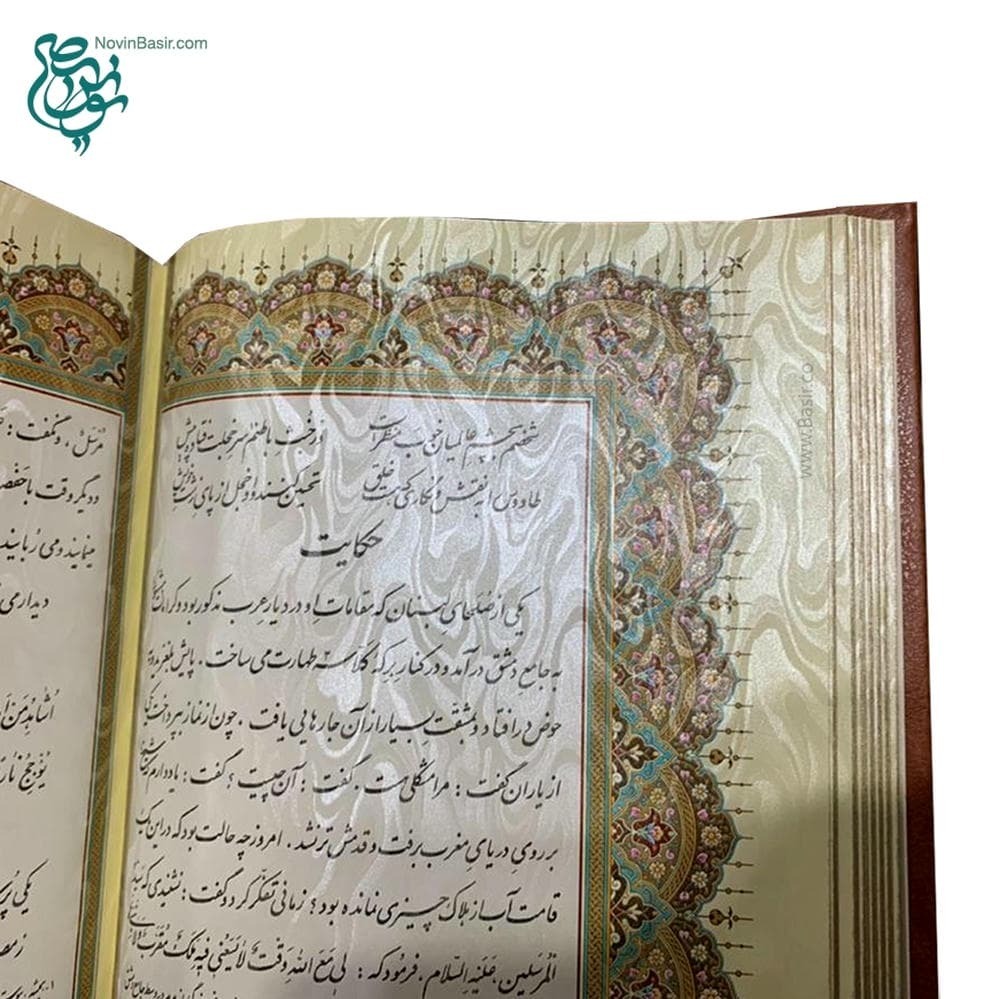 NovinBasir.com
نوین بصیر
www.Basir.co
شخصم بچشم عالمیان خوب منظرست
وز خبث باطنم سر خجلت فتاده پیش
طاووس را به نقش و نگاری که هست خلق
تحسین کنند و او خجل از پای زشت خویش
حکایت
یکی از صلحای لبنان که مقامات او در دیار عرب مذکور بود و کرامات
به جامع دمشق درآمد و در کنار برکه کلاسه طهارت می ساخت . پایش بلغزید و به
حوض در افتاد و بمشقت بسیار از آن جا رهایی یافت . چون از نماز بپرداخت یکی
از یاران گفت : مرا مشکلی است . گفت : آن چیست ؟ گفت : یاد دارم که شیخ
بر روی دریای مغرب برفت و قدمش تر نشد . امروز چه حالت بود که در این یک
قامت آب از هلاک چیزی نمانده بود ؟ زمانی تفکر کرد و گفت : نشنیدی که سید
المرسلین ، علیه السلام . فرمود که : لی مع الله وقت لا یسعنی فیه ملک مقرب ولا نبی
مرسل ، و نگفت :
و دیگر وقت با حفصه
مینمایند و می ربایند
دیدار می
اشاهد من
یؤجج نارا
یکی پرسید